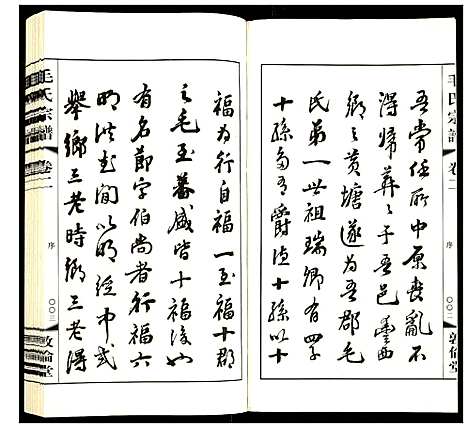 毛氏宗譜
卷二
序
〇〇二
敦倫堂
吾常任所中原喪亂不
得歸葬之于吾邑豐西
鄉之黃塘遂為吾郡毛
氏第一世祖瑞卿有四子
十孫多有爵德十孫以十
福為行自福一至福十郡
之毛至蕃盛皆十福後也
有名節字伯尚者行福六
明洪武間以明經中式
舉鄉三老時鄉三老得
毛氏宗譜
卷二
序
〇〇三
敦倫堂